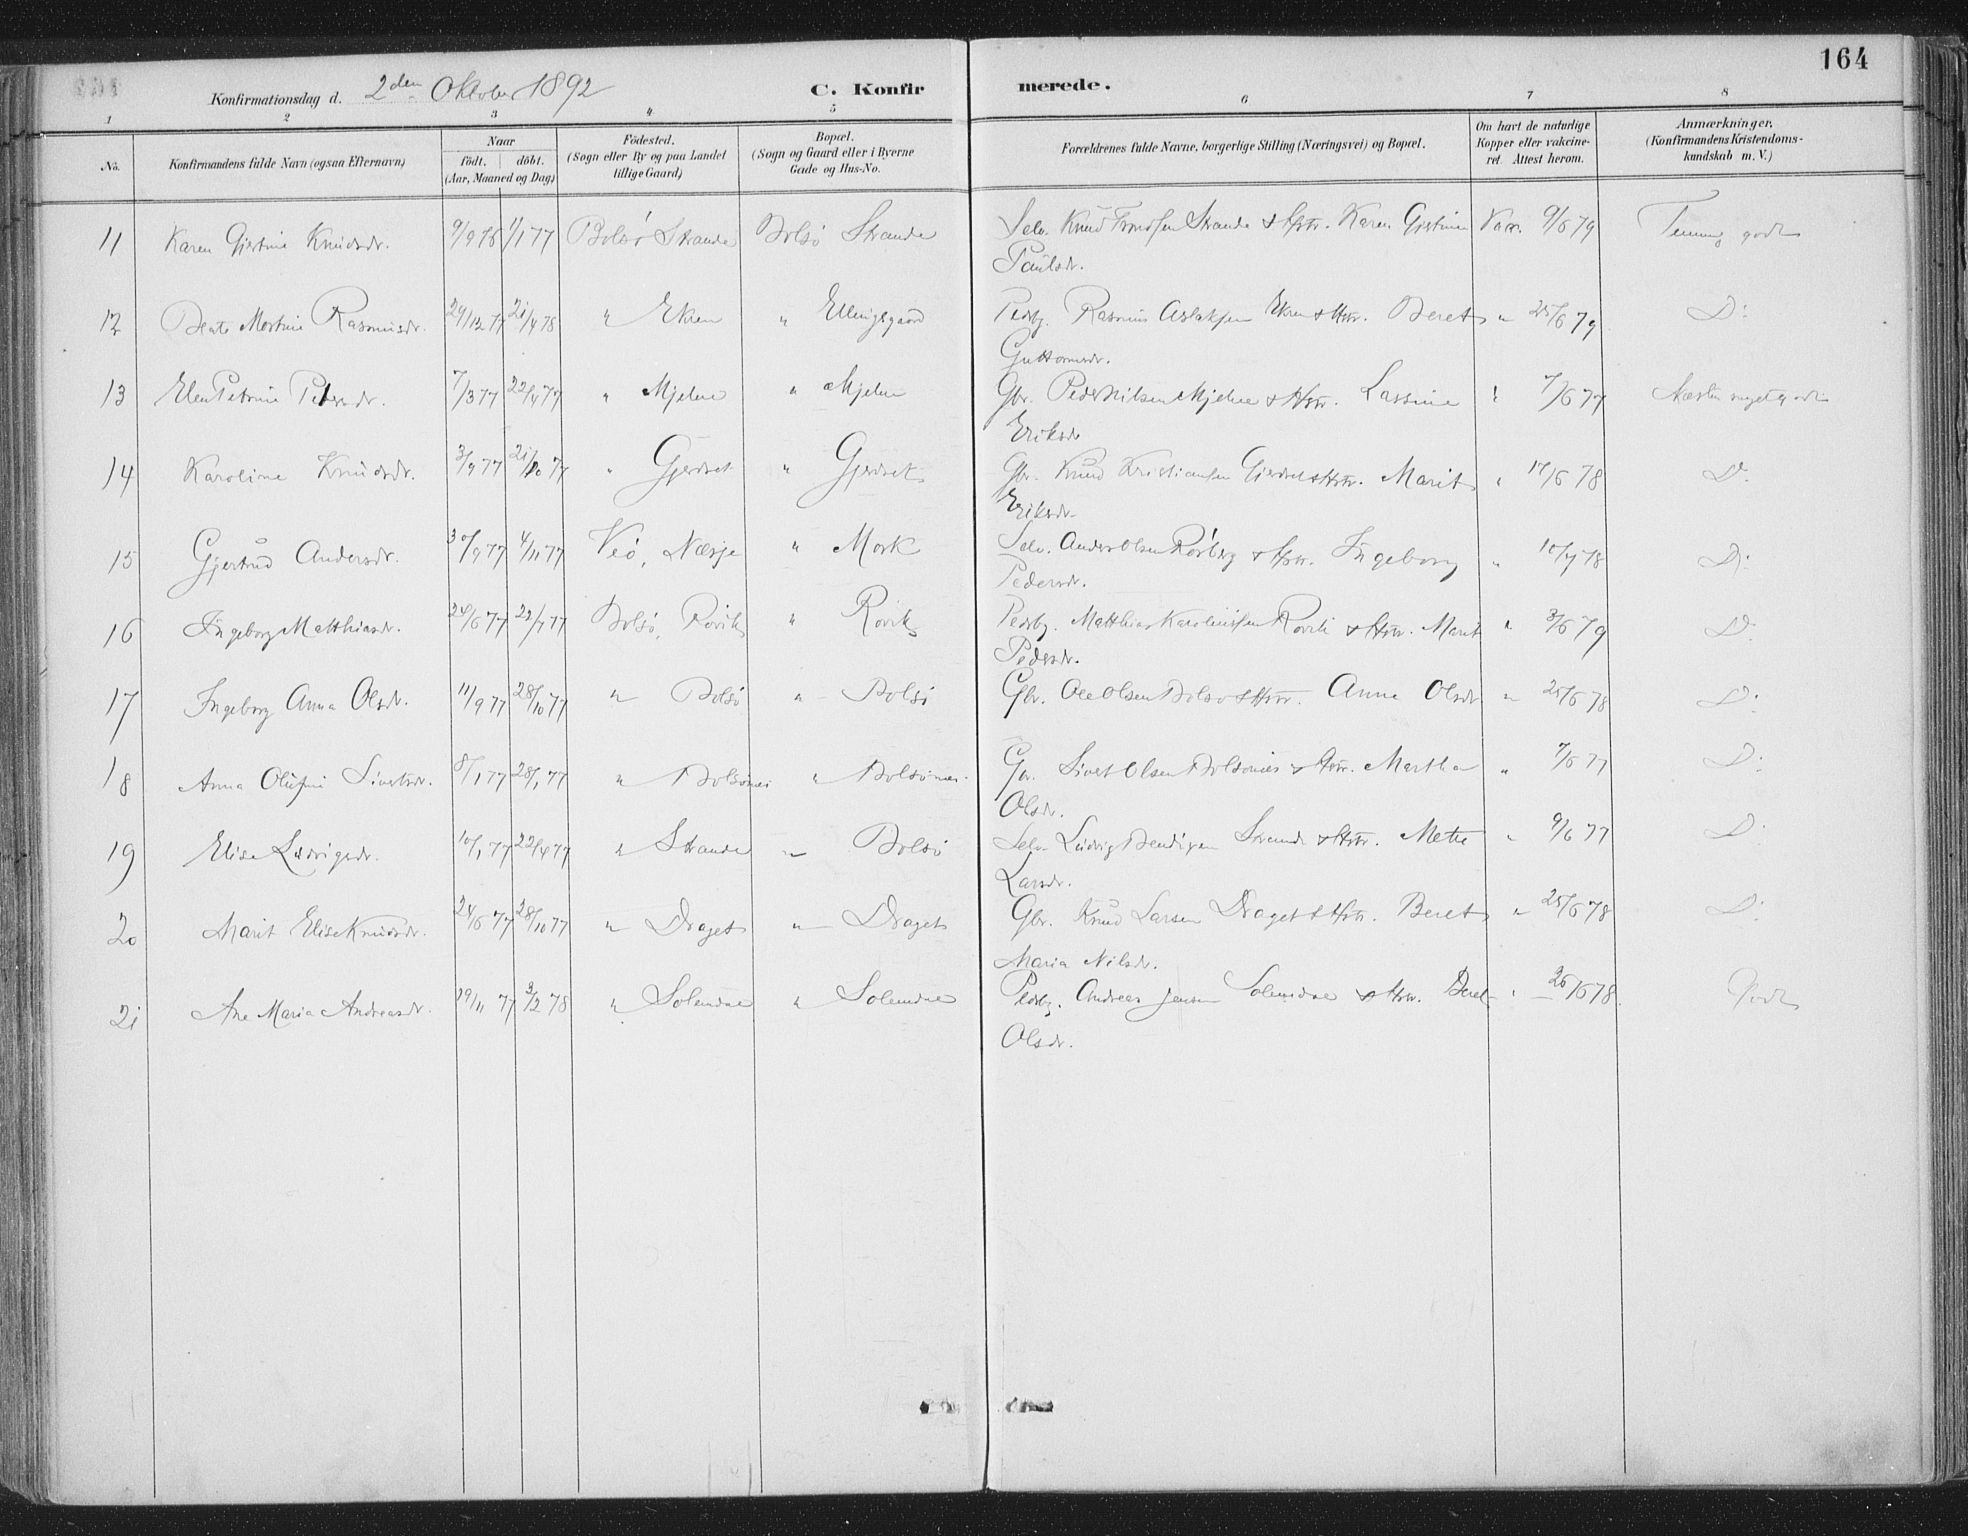 164
Konfirmationsdag d. 2den Oktober 1892 C. Konfir merede.
1 2 3 4 5 6 7 8
No. Konfirmandens fulde Navn (ogsaa Efternavn) Naar födt. döbt. (Aar, Maaned og Dag) Födested. (Sogn eller By og paa Landet tillige Gaard) Bopæl. (Sogn og Gaard eller i Byerne Gade og Hus-No. Forældrenes fulde Navne, borgerlige Stilling (Næringsvei) og Bopæl. Om havt de naturlige Kopper eller vakcineret. Attest herom. Anmærkninger. (Konfirmandens Kristendomskundskab m. V.)
11 Karen Gjertine Knudsdr. 9/9 76 1/1 77 Bolsö Strande Bolsö Strande Selv. Knud Strande & Hstr. Karen Gjertine Vacc. 9/6 79 Temmg godt
Paulsdr.
12 Beate Martine Rasmusdr. 29/12 77 21/4 78 " Ekren " Ellingsgaard Pladsbg. Rasmus Aslaksen Ekren & Hstr. Beret " 25/6 79 D:
Guttormsdr.
13 Elen Petrine Pedersdr. 7/3 77 22/4 77 " Mjelve " Mjelve Gbr. Peder Nilsen Mjelve & Hstr. Lassine " 7/6 77 Næsten meget godt
Eriksdr
14 Karoline Knudsdr. 3/9 77 21/10 77 " Gjerdset " Gjerdset Gbr. Knud Kristiansen Gjerdset & Hstr. Marit " 17/6 78 D:
Eriksdr
15 Gjertrud Andersdr. 30/9 77 4/11 77 Veö, Næsje " Mork Selv. Anders Olsen & Hstr. Ingeborg " 78 D:
Pedersdr.
16 Ingeborg Matthiasdr. 24/6 77 22/7 77 Bolsö, Rövik " Rövik Pladsbg. Matthias Rövik & Hstr. Marit " 3/6 79 D:
Pedersdr.
17 Ingeborg Anna Olsdr. 11/9 77 28/10 77 " Bolsö " Bolsö Gbr. Ole Olsen Bolsö & Hstr. Anna Olsdr " 25/6 78 D:
18 Anna Olufine Sivertsdr. 8/1 77 28/1 77 " Bolsönæs " Bolsönæs Gbr. Sivert Olsen Bolsönæs & Hstr. Martha " 7/6 77 D:
Olsdr.
19 Elise Ludvigsdr. 10/1 77 22/4 77 " Strande " Bolsö Selv. Ludvig Strande & Hstr. Mette " 9/6 77 D:
Larsdr.
20 Marit Elise Knudsdr. 24/6 77 28/10 77 " Draget " Draget Gbr. Knud Larsen Draget & Hstr. Beret " 25/6 78 D:
Maria Nilsdr.
21 Ane Maria Andreasdr. 19/11 77 3/2 78 " Solemdue " Solemdue Pladsbg. Andreas Jensen Solemdue & Hstr. Beret " 26/6 78 Godt
Olsdr.